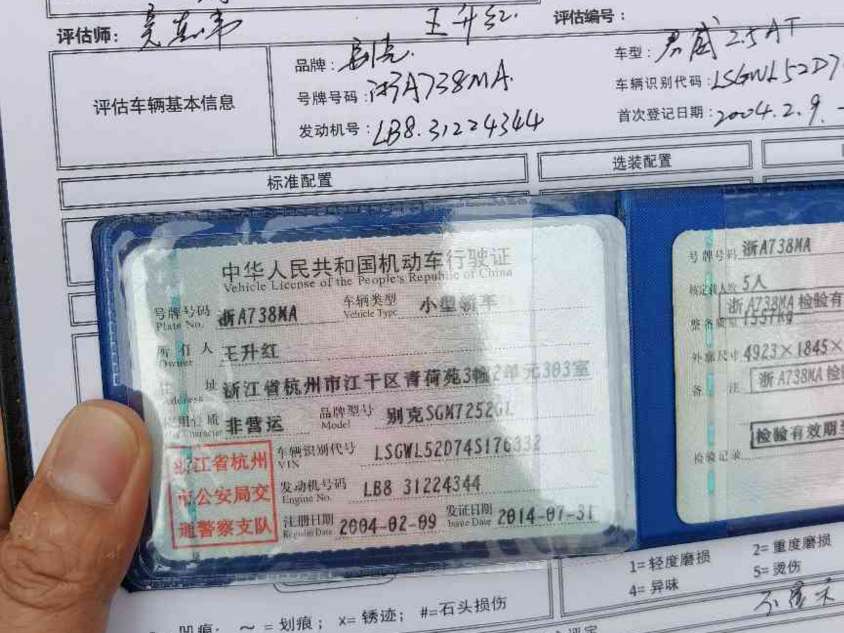 评估师：
王升红
评估编号：
评估车辆基本信息
品牌：别克
车型：君威2.5AT
号牌号码：浙A738MA
车辆识别代码：LSGWL52D7
发动机号：LB8.31224344
首次登记日期：2004.2.9.
标准配置
选装配置
中华人民共和国机动车行驶证
Vehicle License of the People's Republic of China
号牌号码 浙A738MA 车辆类型 小型轿车
Plate No. Vehicle Type
所有人 王升红
Owner
住址 浙江省杭州市江干区青荷苑3幢2单元303室
Address
使用性质 非营运 品牌型号 别克SGM7252GL
Character Model
浙江省杭州
市公安局交
通警察支队
车辆识别代号 LSGWL52D74S176332
VIN
发动机号码 LB8 31224344
Engine No.
注册日期 2004-02-09 发证日期 2014-07-31
Register Date Issue Date
号牌号码 浙A738MA
核定载人数 5人
浙A738MA 检验有
整备质量 1557kg
外廓尺寸 4923×1845×
备注 浙A738MA 检
检验有效期至
检验记录
1=轻度磨损 2=重度磨损
4=异味 5=烫伤
凹痕； ～=划痕； ×=锈迹； #=石头损伤